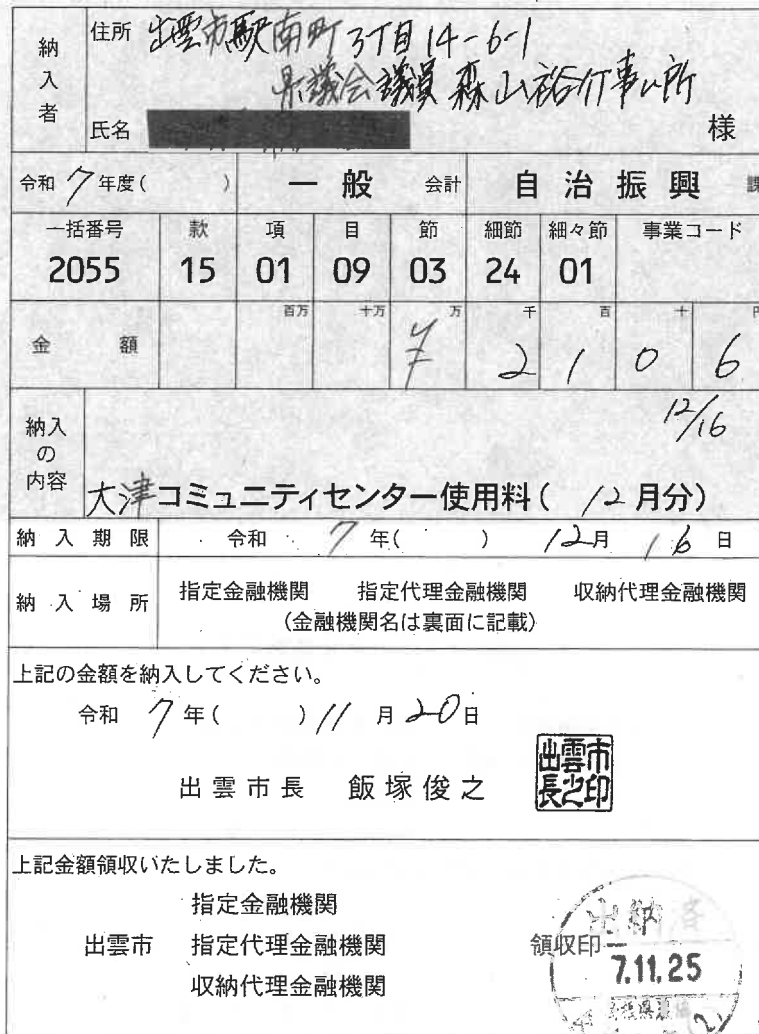 納入者
住所 出雲市駅南町3丁目14-6-1
県議会議員 森山裕介事ム所
氏名 様
令和 7 年度( ) 一般 会計 自治振興 課
一括番号 款 項 目 節 細節 細々節 事業コード
2055 15 01 09 03 24 01
百万 十万 万 千 百 十 円
金額 ¥ 2 1 0 6
12/16
納入の内容
大津コミュニティセンター使用料( 12月分)
納入期限 令和 7 年( ) 12月 16日
納入場所 指定金融機関 指定代理金融機関 収納代理金融機関
(金融機関名は裏面に記載)
上記の金額を納入してください。
令和 7年( ) 11月20日
出雲市長 飯塚俊之
出雲市長之印
上記金額領収いたしました。
指定金融機関
出雲市 指定代理金融機関 領収印
収納代理金融機関
出納
7.11.25